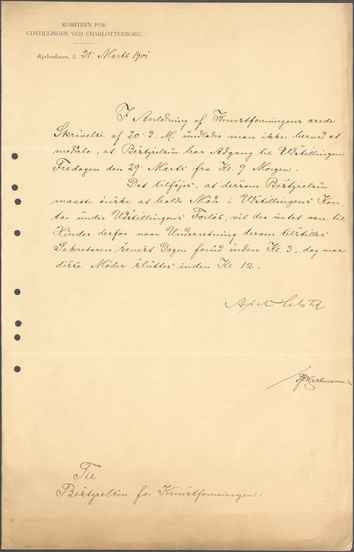 KOMITEEN FOR
UDSTILLINGEN VED CHARLOTTENBORG.
Kjøbenhavn, d. 21' Marts 1901
I Anledning af Kunstforeningens ærede
Skrivelse af 20 d. M. undlades man ikke herved at
meddele, at Bestyrelsen har Adgang til Udstillingen
Fredagen den 29 Marts fra Kl. 9 Morgen.
Det tilføjes, at dersom Bestyrelsen
maatte ønske at holde Møde i Udstillingens Kon-
tor under Udstillingens , vil der intet være til
Hinder derfor naar Underretning derom tilstilles
Sekretæren senest Dagen forud inden Kl. 3, dog maa
disse Møder sluttes inden Kl. 12.
Til
Bestyrelsen for Kunstforeningen.